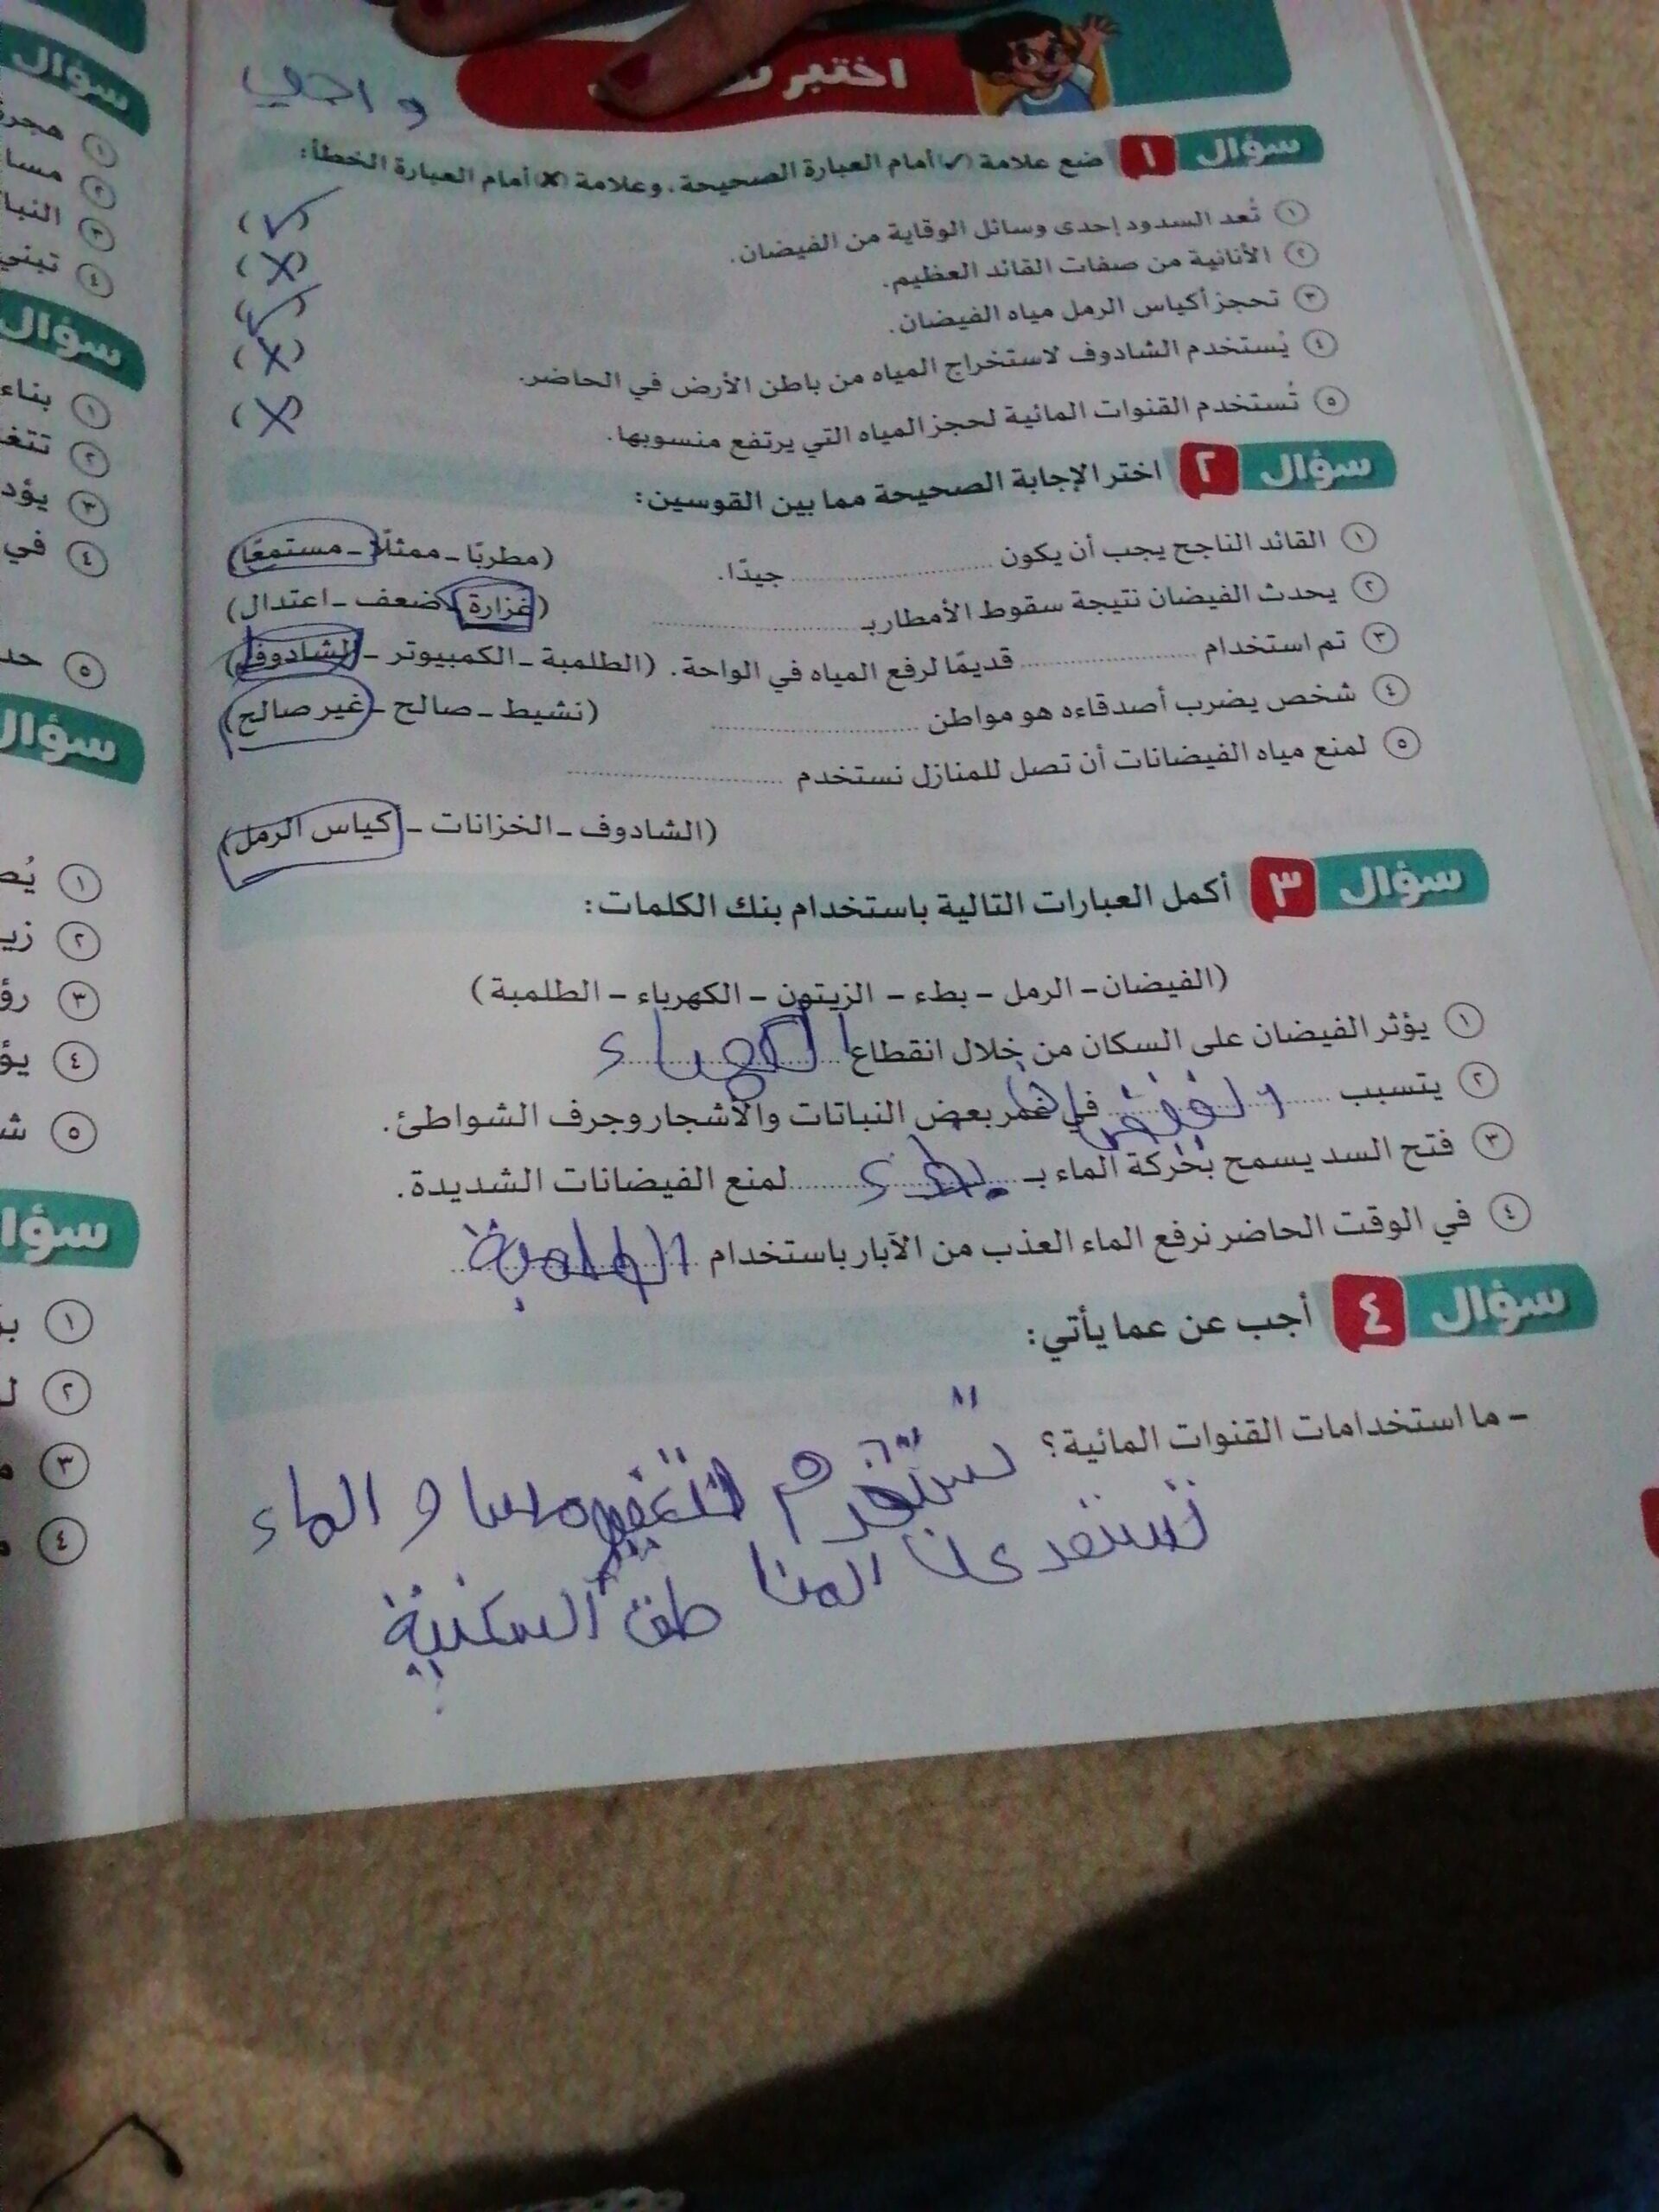 واجب
اختبر
سؤال ١ ضع علامة (✓) أمام العبارة الصحيحة، وعلامة (✗) أمام العبارة الخطأ:
١ تُعد السدود إحدى وسائل الوقاية من الفيضان. (✓)
٢ الأنانية من صفات القائد العظيم. (✗)
٣ تحجز أكياس الرمل مياه الفيضان. (✓)
٤ يُستخدم الشادوف لاستخراج المياه من باطن الأرض في الحاضر. (✗)
٥ تُستخدم القنوات المائية لحجز المياه التي يرتفع منسوبها. (✗)
سؤال ٢ اختر الإجابة الصحيحة مما بين القوسين:
١ القائد الناجح يجب أن يكون ........ جيدًا. (مطربًا - ممثلًا - مستمعًا)
٢ يحدث الفيضان نتيجة سقوط الأمطار بـ ........ (غزارة - ضعف - اعتدال)
٣ تم استخدام ........ قديمًا لرفع المياه في الواحة. (الطلمبة - الكمبيوتر - الشادوف)
٤ شخص يضرب أصدقاءه هو مواطن ........ (نشيط - صالح - غير صالح)
٥ لمنع مياه الفيضانات أن تصل للمنازل نستخدم ........
(الشادوف - الخزانات - أكياس الرمل)
سؤال ٣ أكمل العبارات التالية باستخدام بنك الكلمات:
(الفيضان - الرمل - بطء - الزيتون - الكهرباء - الطلمبة)
١ يؤثر الفيضان على السكان من خلال انقطاع
٢ يتسبب الفيضان في غمر بعض النباتات والأشجار وجرف الشواطئ.
٣ فتح السد يسمح بحركة الماء بـ بطء لمنع الفيضانات الشديدة.
٤ في الوقت الحاضر نرفع الماء العذب من الآبار باستخدام الطلمبة
سؤال ٤ أجب عن عما يأتي:
- ما استخدامات القنوات المائية؟
تستخدم الماء
المناطق السكنية
سؤال
١ هجرة
٢ مسا
٣ النبا
٤ تبني
سؤال
١ بناء
٢ تتغ
٣ يؤد
٤ في
٥ حد
سؤال
١ يُص
٢ زي
٣ رؤ
٤ يؤ
٥ ش
سؤا
١
٢
٣
٤